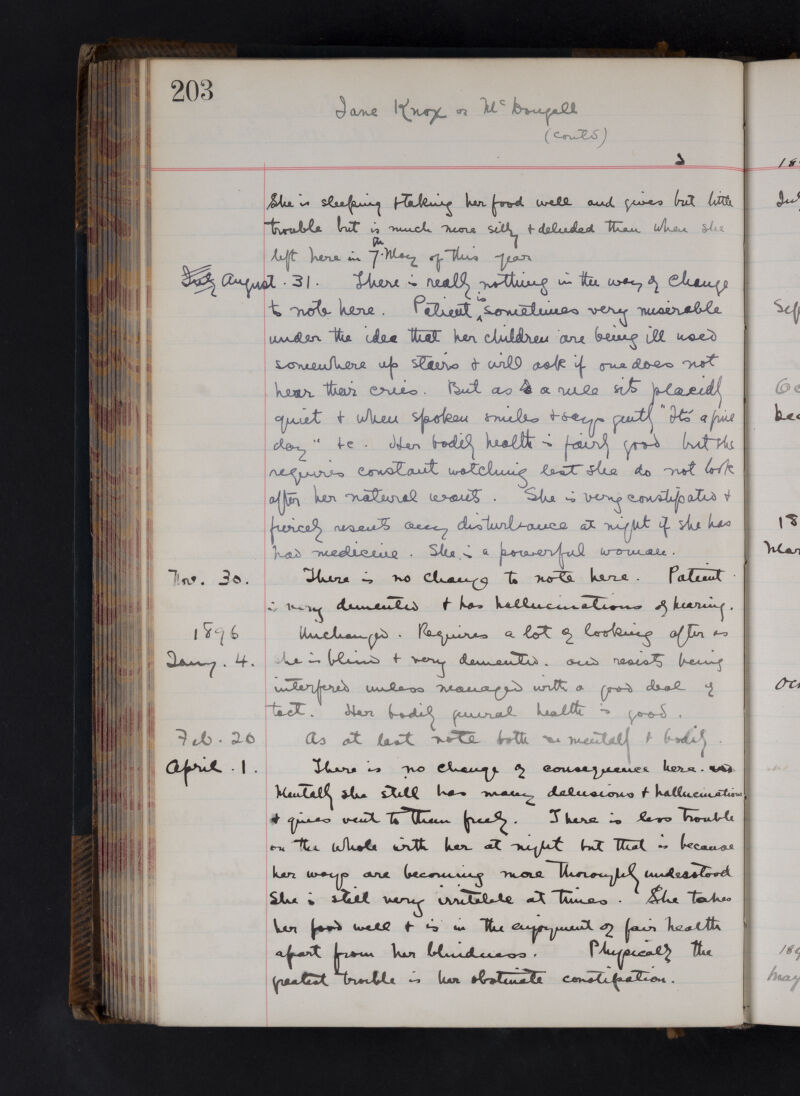 203
Jane Knox or McDougall
(contd)
She is sleeping & taking her food well and gives but little
trouble but is much more silly & deluded than when she
left here in 7th May of this year
July August. 31. There is really nothing in the way of change
to note here. Patient is sometimes very miserable
under the idea that her children are being ill used
somewhere up stairs & will ask if one does not
hear their cries. But as a rule sits placidly
quiet & when spoken smiles & says gently "Its a fine
day" &c. Her bodily health is fairly good but she
requires constant watching lest she do not look
after her natural wants. She is very constipated &
fiercely resents any disturbance at night if she has
had medicine. She is a powerful woman.
Nov. 30. There is no change to note here. Patient
is very demented & has hallucinations of hearing.
1896 Unchanged. Requires a lot of looking after as
Jany. 4. she is blind & very demented. and resists being
interfered unless managed with a good deal of
tact. Her bodily general health is good.
Feb. 20 As at last note both mentally & bodily.
April. 1. There is no change of consequence here.
Mentally she still has many delusions & hallucinations
& gives vent to them freely. There is less trouble
on the whole with her at night but that is because
her ways are becoming more thoroughly understood
She is still very irritable at times. She takes
her food well & is in the enjoyment of fair health
apart from her blindness. Physically the
greatest trouble is her obstinate constipation.